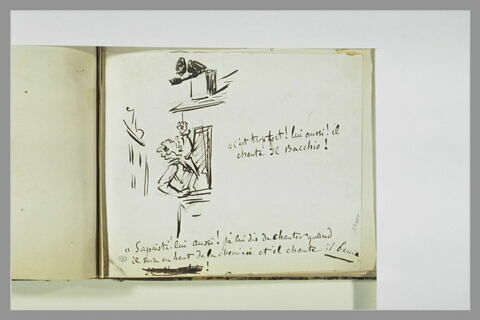 « C'est trop fort ! lui aussi ! il
chante Il Bacchio !
« Sapristi ! lui aussi ! je lui dis de chanter quand
il sera en haut de la cheminée et il chante il bacio
!